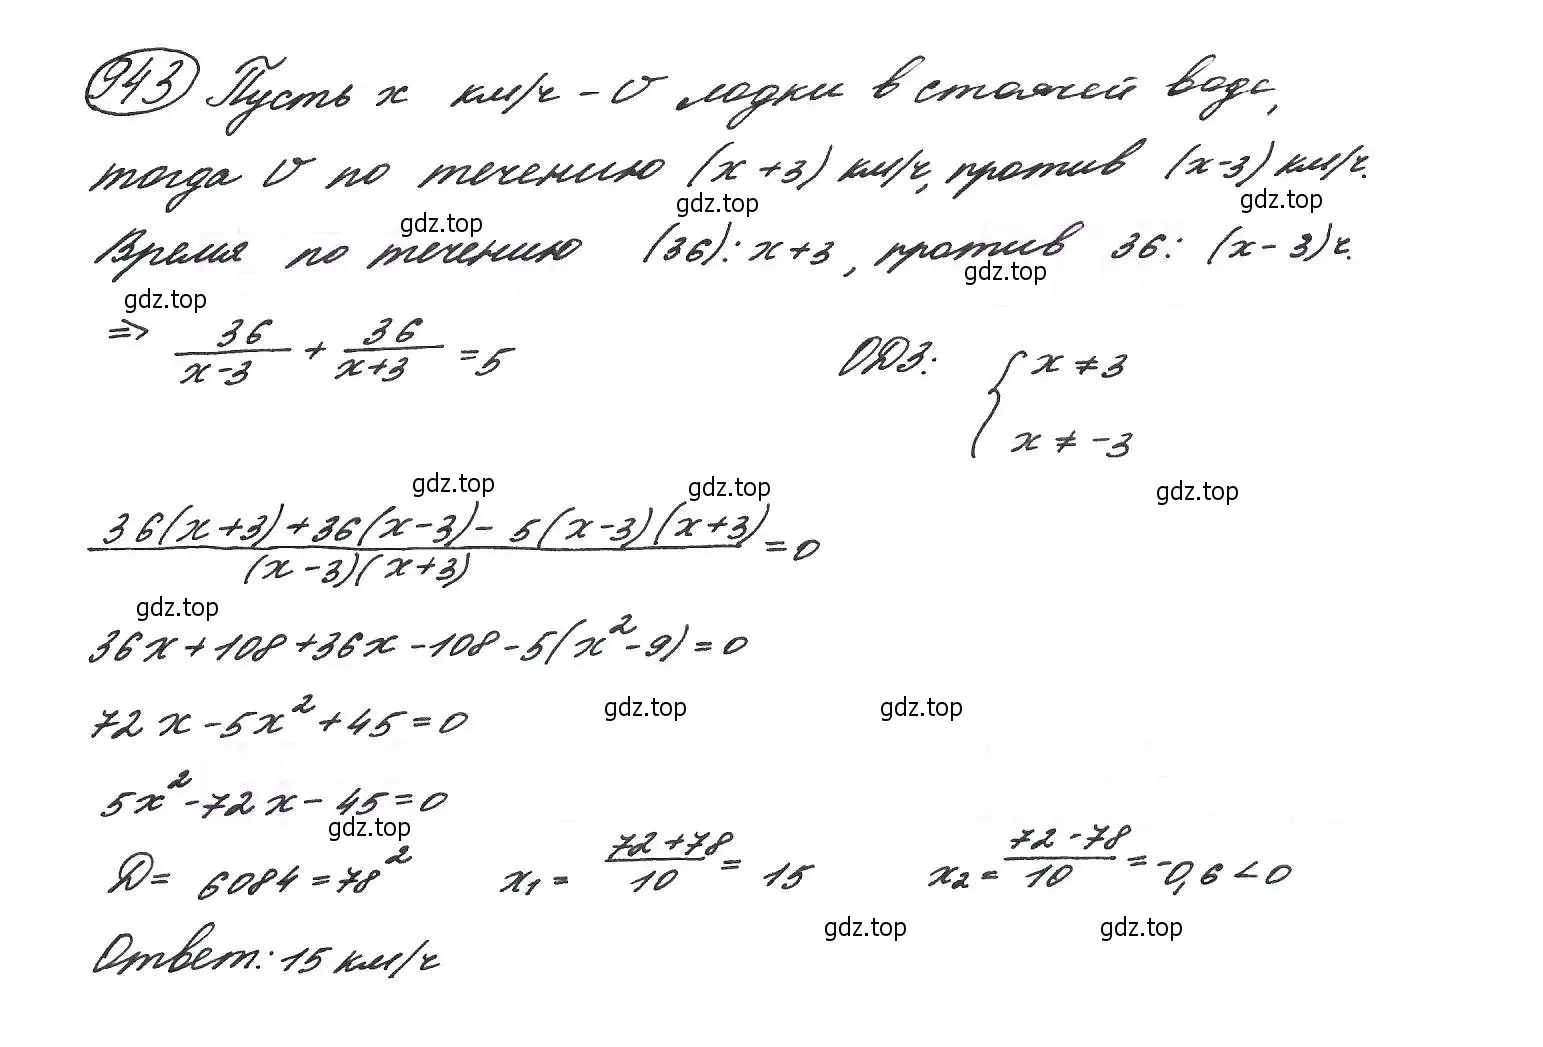 943 Пусть x км/ч - v лодки в стоячей воде,
тогда v по течению (x+3) км/ч, против (x-3) км/ч.
gdz.top gdz.top gdz.top
Время по течению (36): x+3, против 36: (x-3) ч.
gdz.top gdz.top
⇒ 36/(x-3) + 36/(x+3) = 5 ОДЗ: { x ≠ 3
x ≠ -3
gdz.top gdz.top gdz.top
(36(x+3)+36(x-3)- 5(x-3)(x+3))/((x-3)(x+3)) = 0
gdz.top
36x+108+36x-108-5(x²-9)=0
gdz.top gdz.top
72x-5x²+45=0
5x²-72x-45=0
gdz.top
D= 6084=78² x₁ = (72+78)/10 = 15 x₂ = (72-78)/10 = -0,6<0
gdz.top gdz.top
Ответ: 15 км/ч